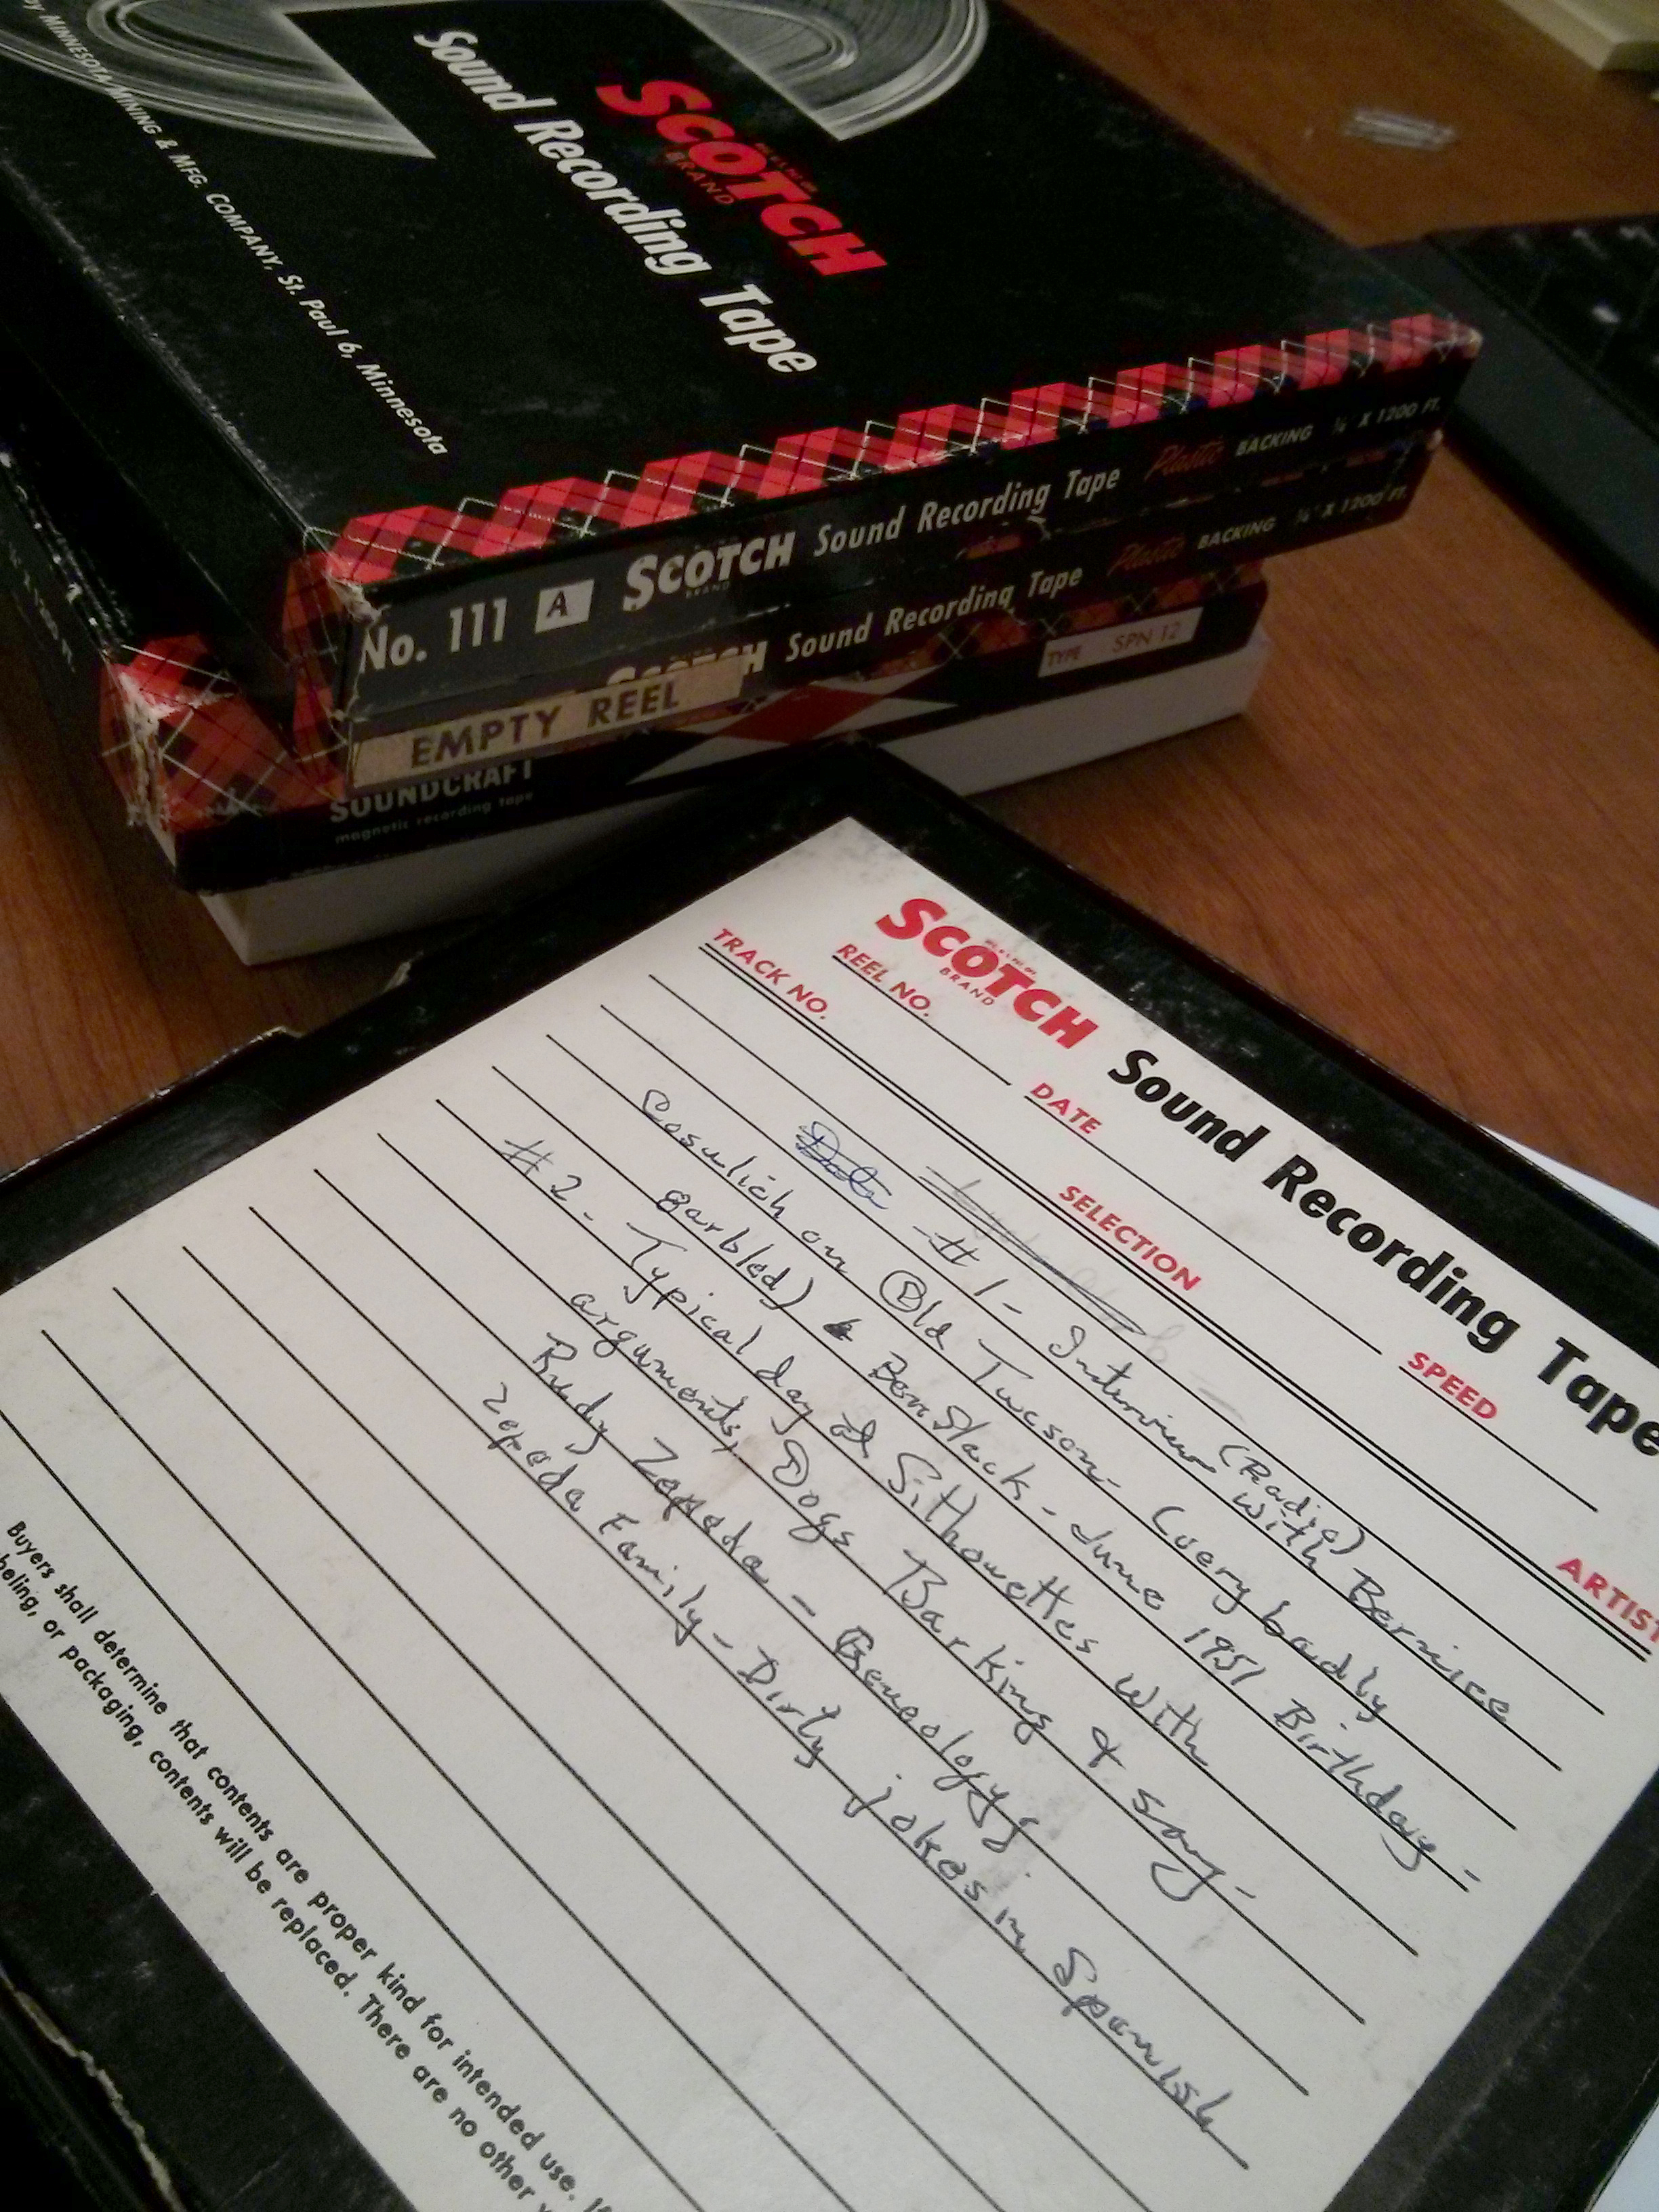 by MINNESOTA MINING & MFG. COMPANY, St. Paul 6, Minnesota
SCOTCH
BRAND
Sound Recording Tape
No. 111 A SCOTCH BRAND Sound Recording Tape Plastic BACKING ¼" X 1200 FT.
SCOTCH Sound Recording Tape Plastic BACKING ¼" X 1200 FT.
EMPTY REEL
SOUNDCRAFT
magnetic recording tape
TYPE SPN-12
SCOTCH BRAND Sound Recording Tape
REEL NO. DATE SPEED
TRACK NO. SELECTION ARTIST
#1- Interview (Radio) with Bernice
Cosulich on Old Tucson- (very badly
garbled) & Ben Slack - June 1951 Birthday -
#2 - Typical day at Silhouettes with
arguments, Dogs Barking & song -
Rudy Zepeda - Geneology;
Zepeda Family - Dirty jokes in Spanish
Buyers shall determine that contents are proper kind for intended use.
beling, or packaging, contents will be replaced. There are no other